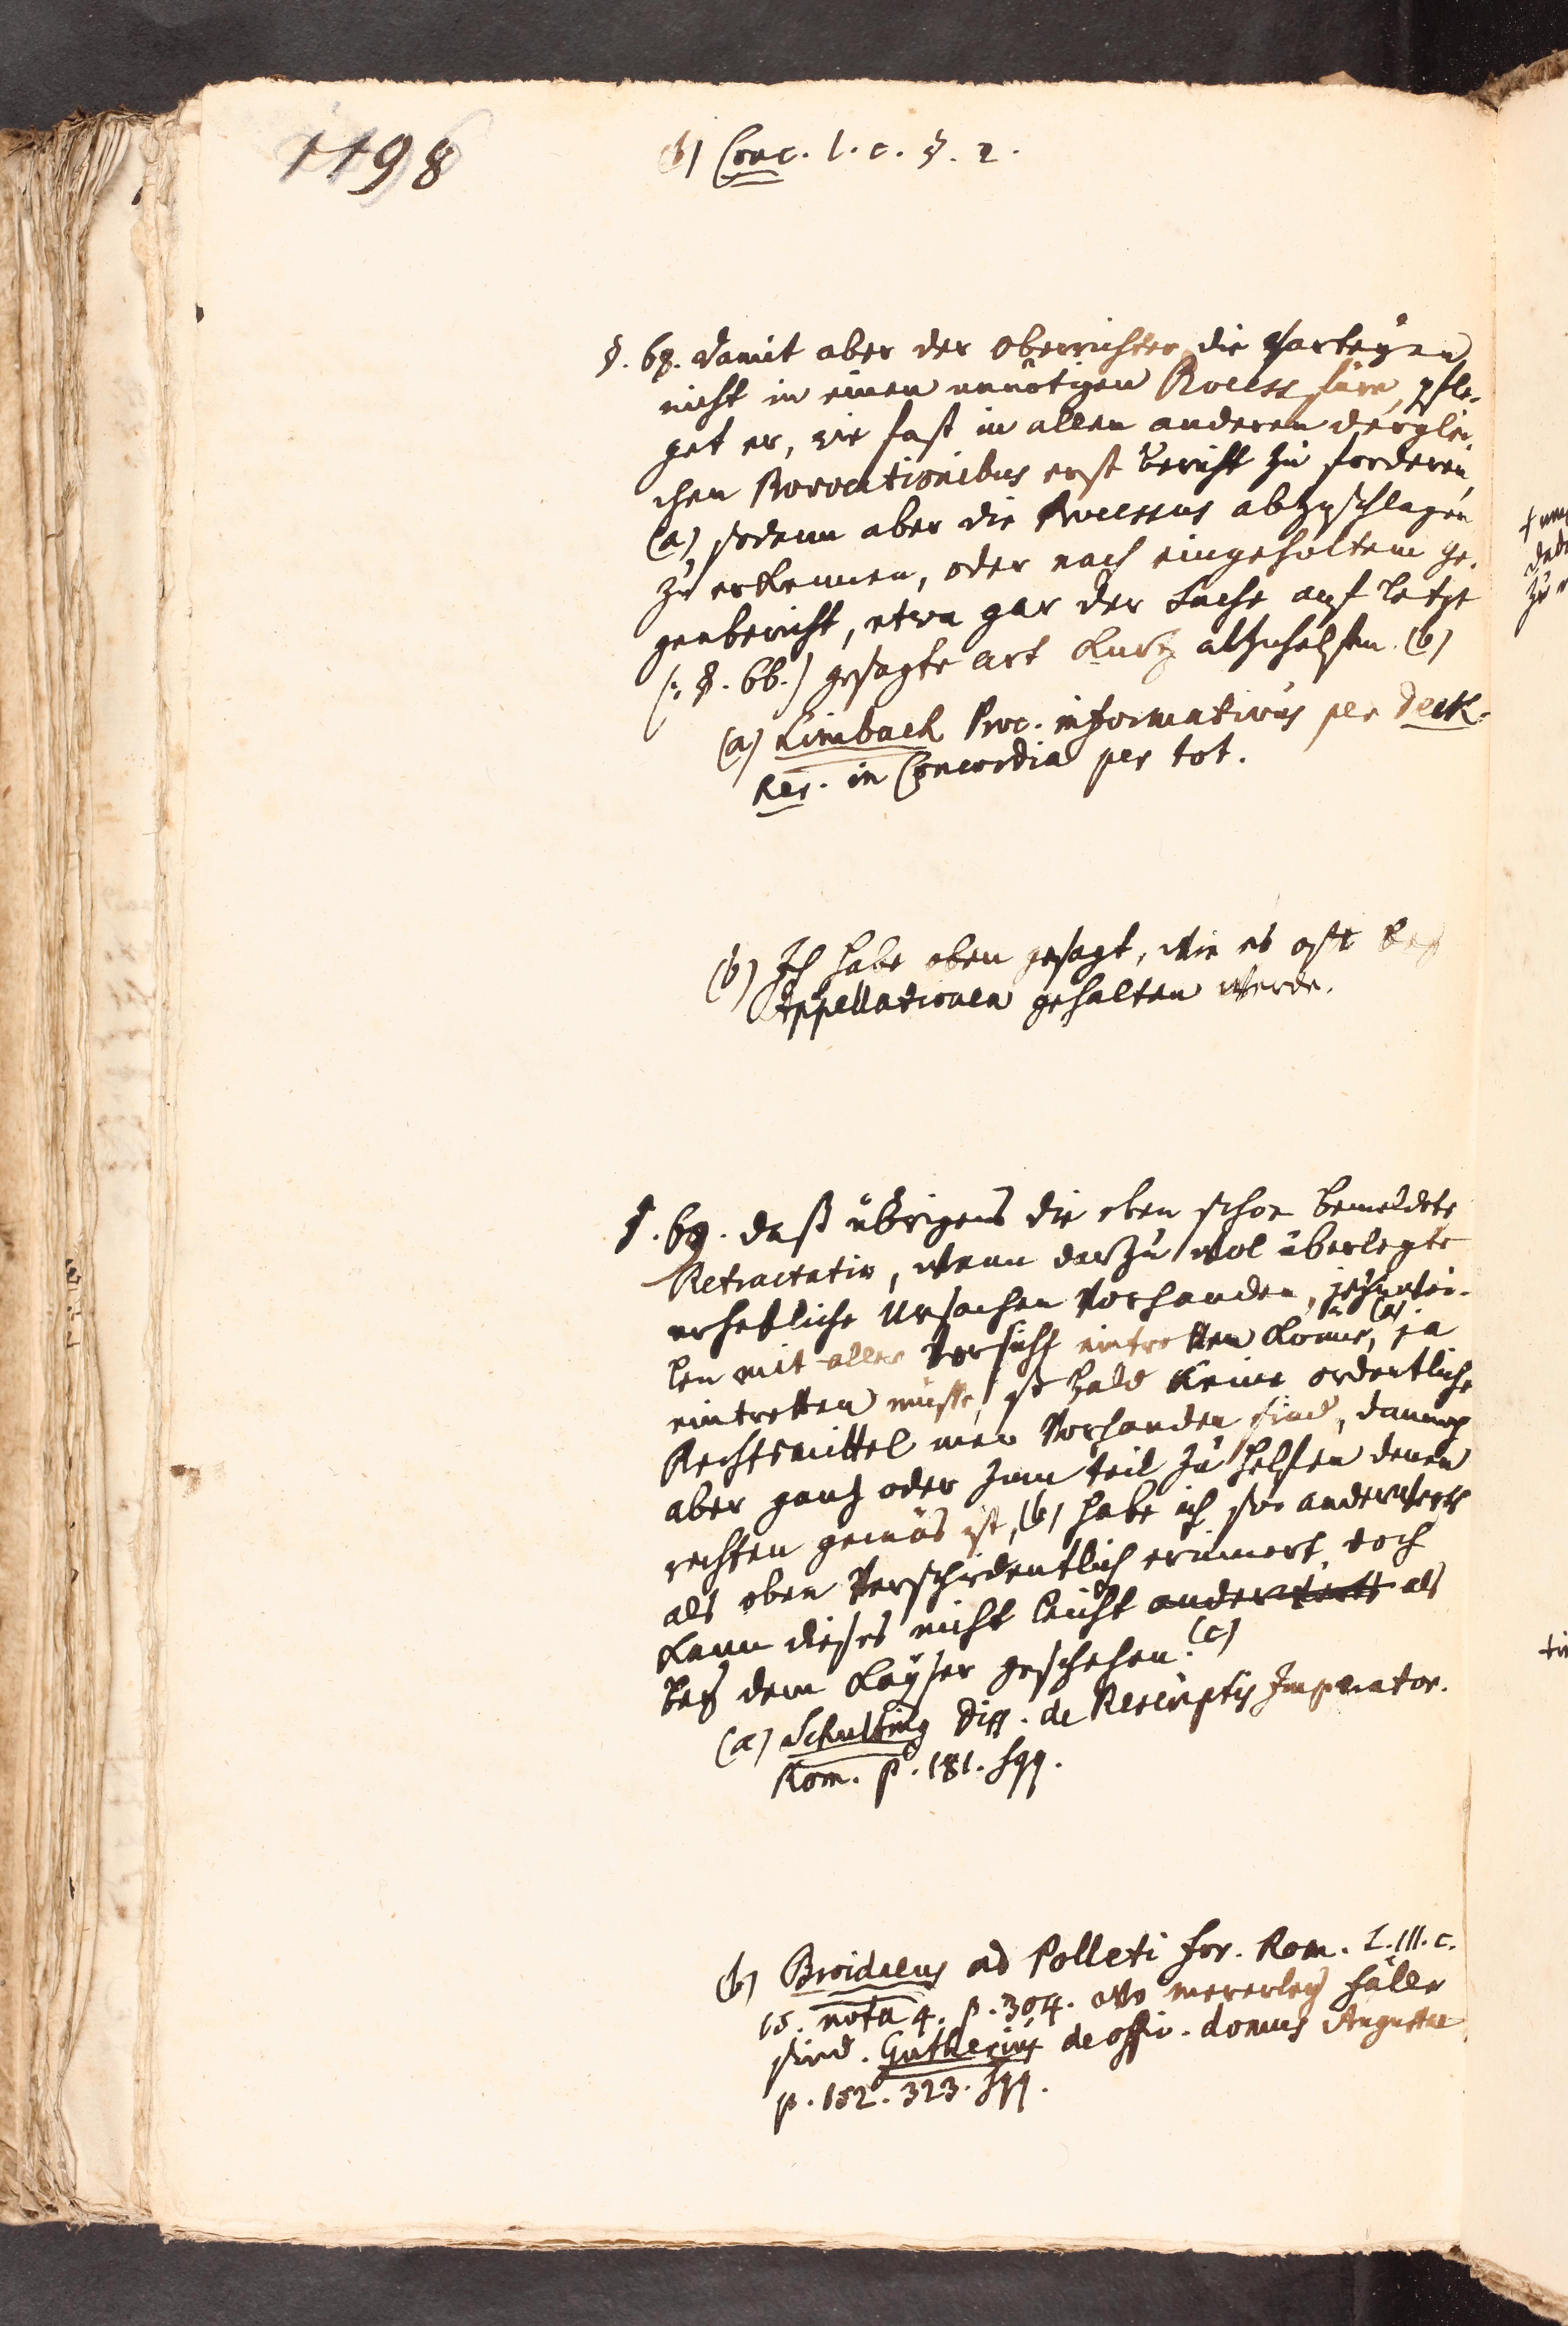 1198
(b) Conc. l. c. §. 2.
§. 68. damit aber der Oberrichter die Parteyen
nicht in einen unnötigen Process füre, pfle-
get er, wie fast in allen anderen derglei-
chen Provocationibus erst bericht zu forderen,
(a) sodann aber die Processus abzuschlagen
zu erkennen, oder nach eingeholtem ge-
genbericht, etwa gar der Sache auf letzt
(: §. 66.) gesagte art kurtz abzuhelfen. (b)
(a) Limbach Proc. informativus per Deck-
Rer. in Concordia per tot.
(b) Ich habe oben gesagt, wie es oft bey
Appellationen gehalten werde.
§. 69. daß übrigens die oben schon bemeldete
Retractatio, wann darzu wol überlegte
erhebliche Ursachen vorhanden, jezuwei-
len mit aller Vorsicht eintretten könne, (a) ja
eintretten müsse, so bald keine ordentliche
Rechtsmittel mer vorhanden sind, dannoch
aber gantz oder zum teil zu helfen denen
rechten gemäs ist, (b) habe ich so anderwerts
als oben verschidentlich erinnert, doch
kann dieses nicht leicht anderwerts als
bey dem Kayser geschehen. (c)
(a) Schulting Diss. de Rescriptis Imperator.
Rom. p. 181. sqq.
(b) Broidaeus ad Polleti for. Rom. L. III. c.
15. nota 4. p. 304. wo mererley fälle
sind. Gutherius de offic. domus Augustae
p. 152. 323. sqq.